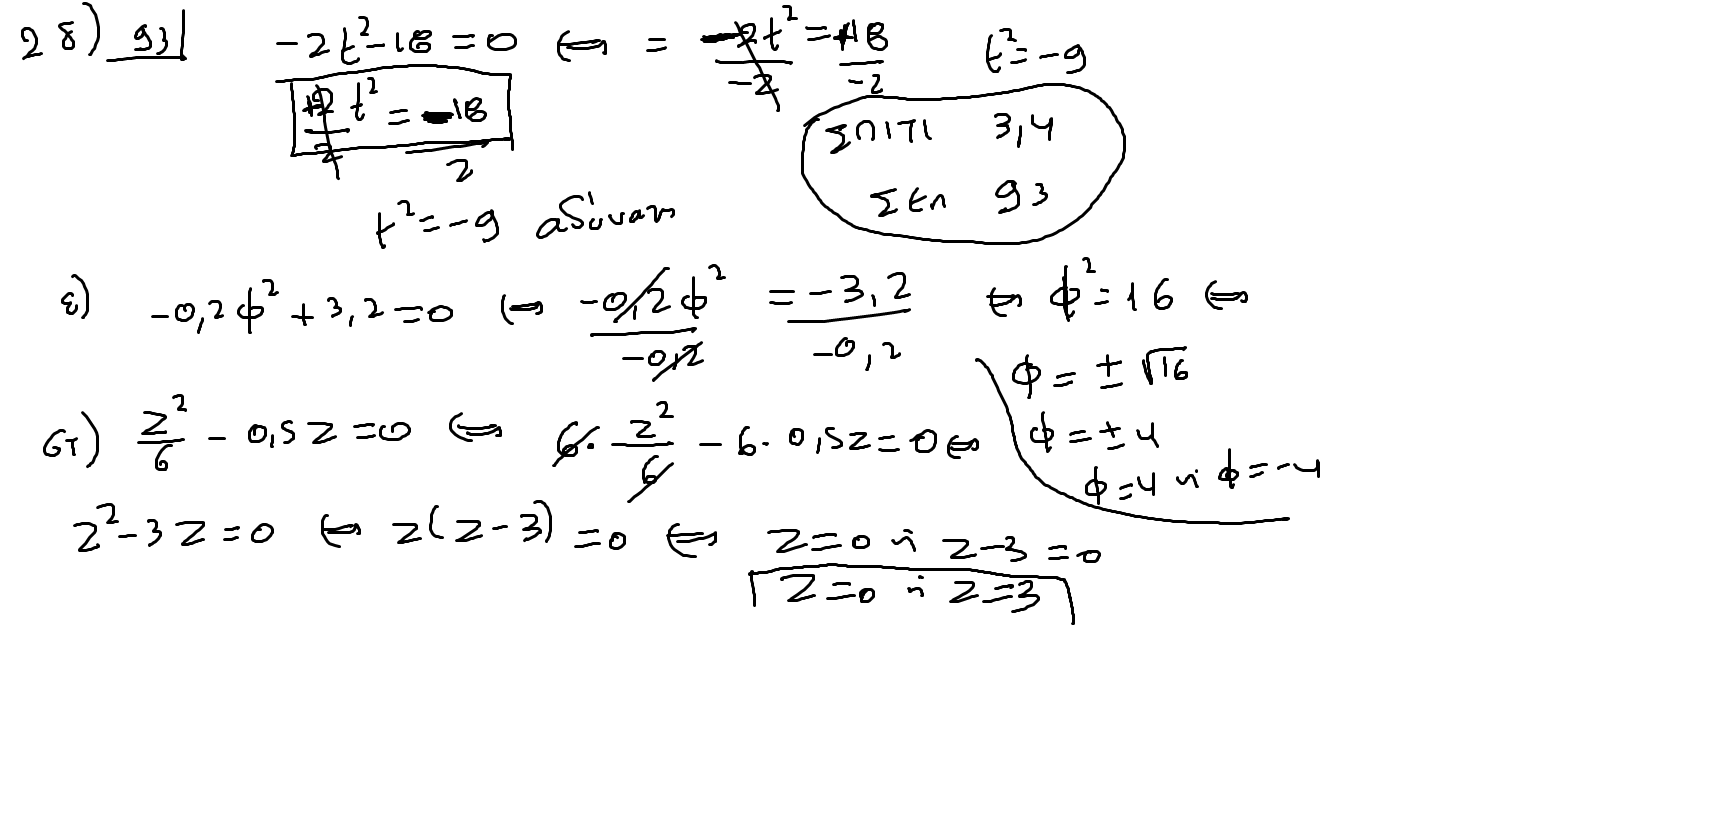 2 δ) 93 -2t²-18=0 ⇔ = -2t²/-2 = +18/-2 t²=-9
+2t²/2 = -18/2
Σπιτι 3,4
Σελ 93
t²=-9 αδύνατη
ε) -0,2φ²+3,2=0 ⇔ -0,2φ²/-0,2 = -3,2/-0,2 ⇔ φ²=16 ⇔
φ=±√16
φ=±4
φ=4 ή φ=-4
στ) z²/6 - 0,5z=0 ⇔ 6·z²/6 - 6·0,5z=0 ⇔
z²-3z=0 ⇔ z(z-3)=0 ⇔ z=0 ή z-3=0
z=0 ή z=3